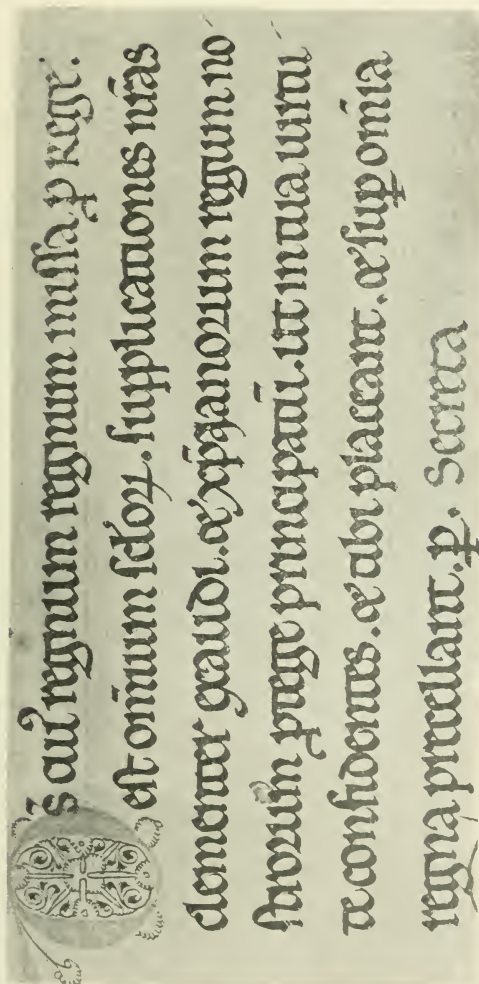 Ds cui' regnum regnum missa p rege.
est om̄ium sc̄oꝝ. supplicationes nr̄as
clementer exaudi. & xp̄ianoꝝum regum no
strorum ꝓtege principatū. ut in tua uirtu
te confidentes. & tibi placeant. & suꝑ om̄ia
regna precellant. ꝑ. Secreta